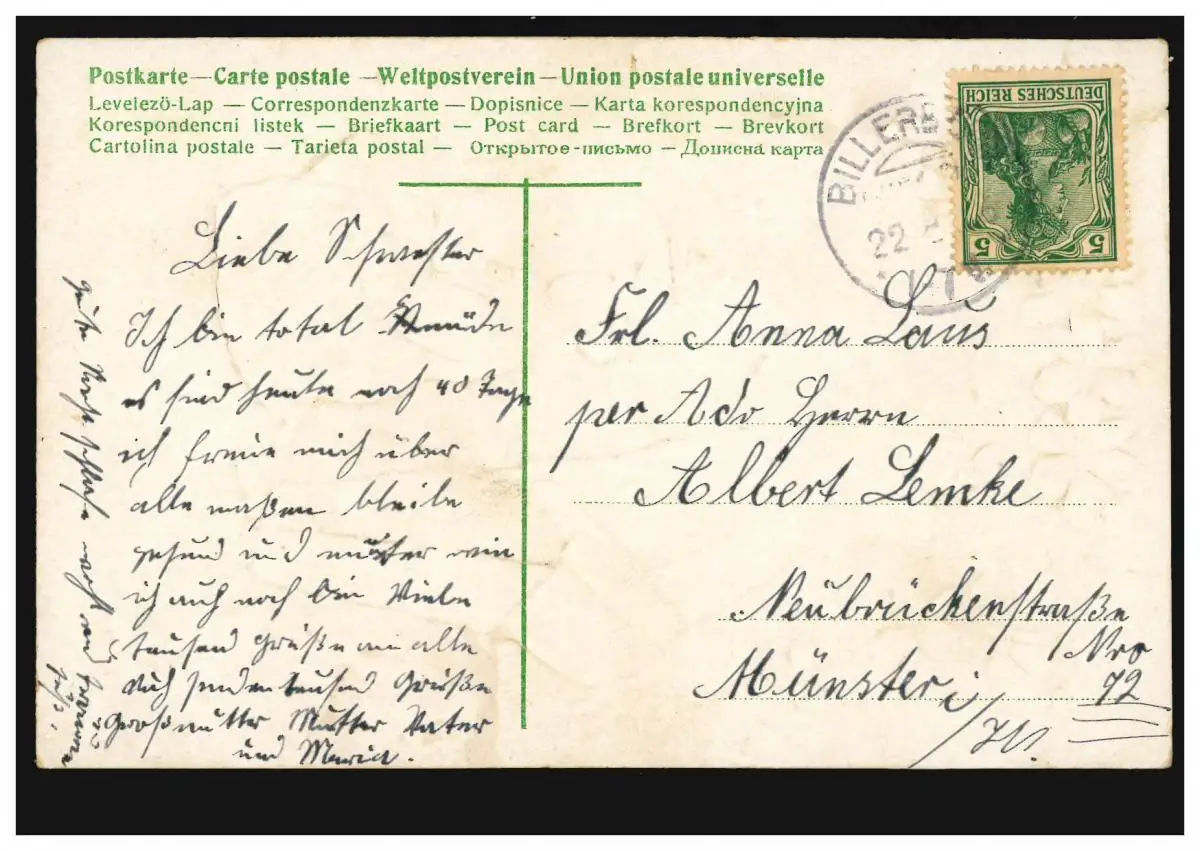 Postkarte — Carte postale — Weltpostverein — Union postale universelle
Levelező-Lap — Correspondenzkarte — Dopisnice — Karta korespondencyjna
Korespondencni listek — Briefkaart — Post card — Brefkort — Brevkort
Cartolina postale — Tarjeta postal — Открытое-письмо — Дописна карта
DEUTSCHES REICH
5 5
BILLERB
22
Liebe Schwester
Ich bin total müde
es sind heute noch 40 Tage
ich freue mich über
alle maßen bleibe
gesund und munter wie
ich auch noch bin Viele
tausend Grüße an alle
Auch senden tausend Grüße
Großmutter Mutter Vater
und Maria.
gute Nacht schlafe wohl und träume
süß.
Frl. Anna Laus
per Adr Herrn
Albert Lemke
Neubrückenstraße
Nro
Münster i 72
/W.